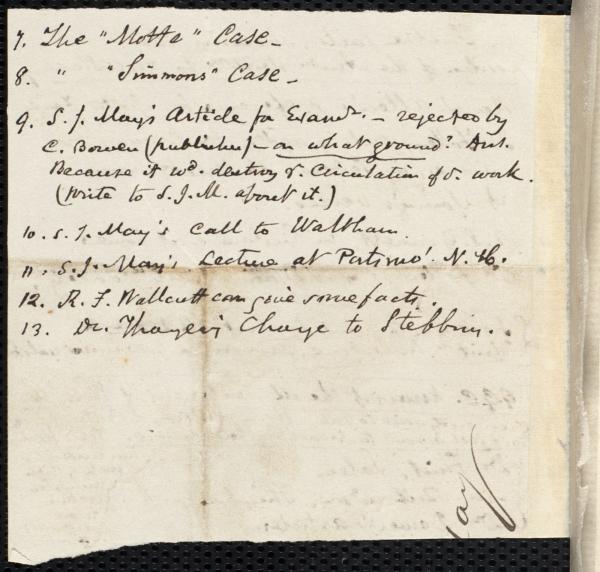 7. The "Motte" Case_
8. " "Simmons" Case_
9. S. J. May's Article for Examr. _ rejected by
C. Bowen (publisher) _ on what ground? Ans.
Because it wd. destroy ye. Circulation of ye. work.
(Write to S. J. M. about it.)
10. S. J. May's Call to Waltham.
11. S. J. May's Lecture at Portsmo' N. H.
12. R. F. Wallcutt can give some facts.
13. Dr. Thayer's Charge to Stebbins.